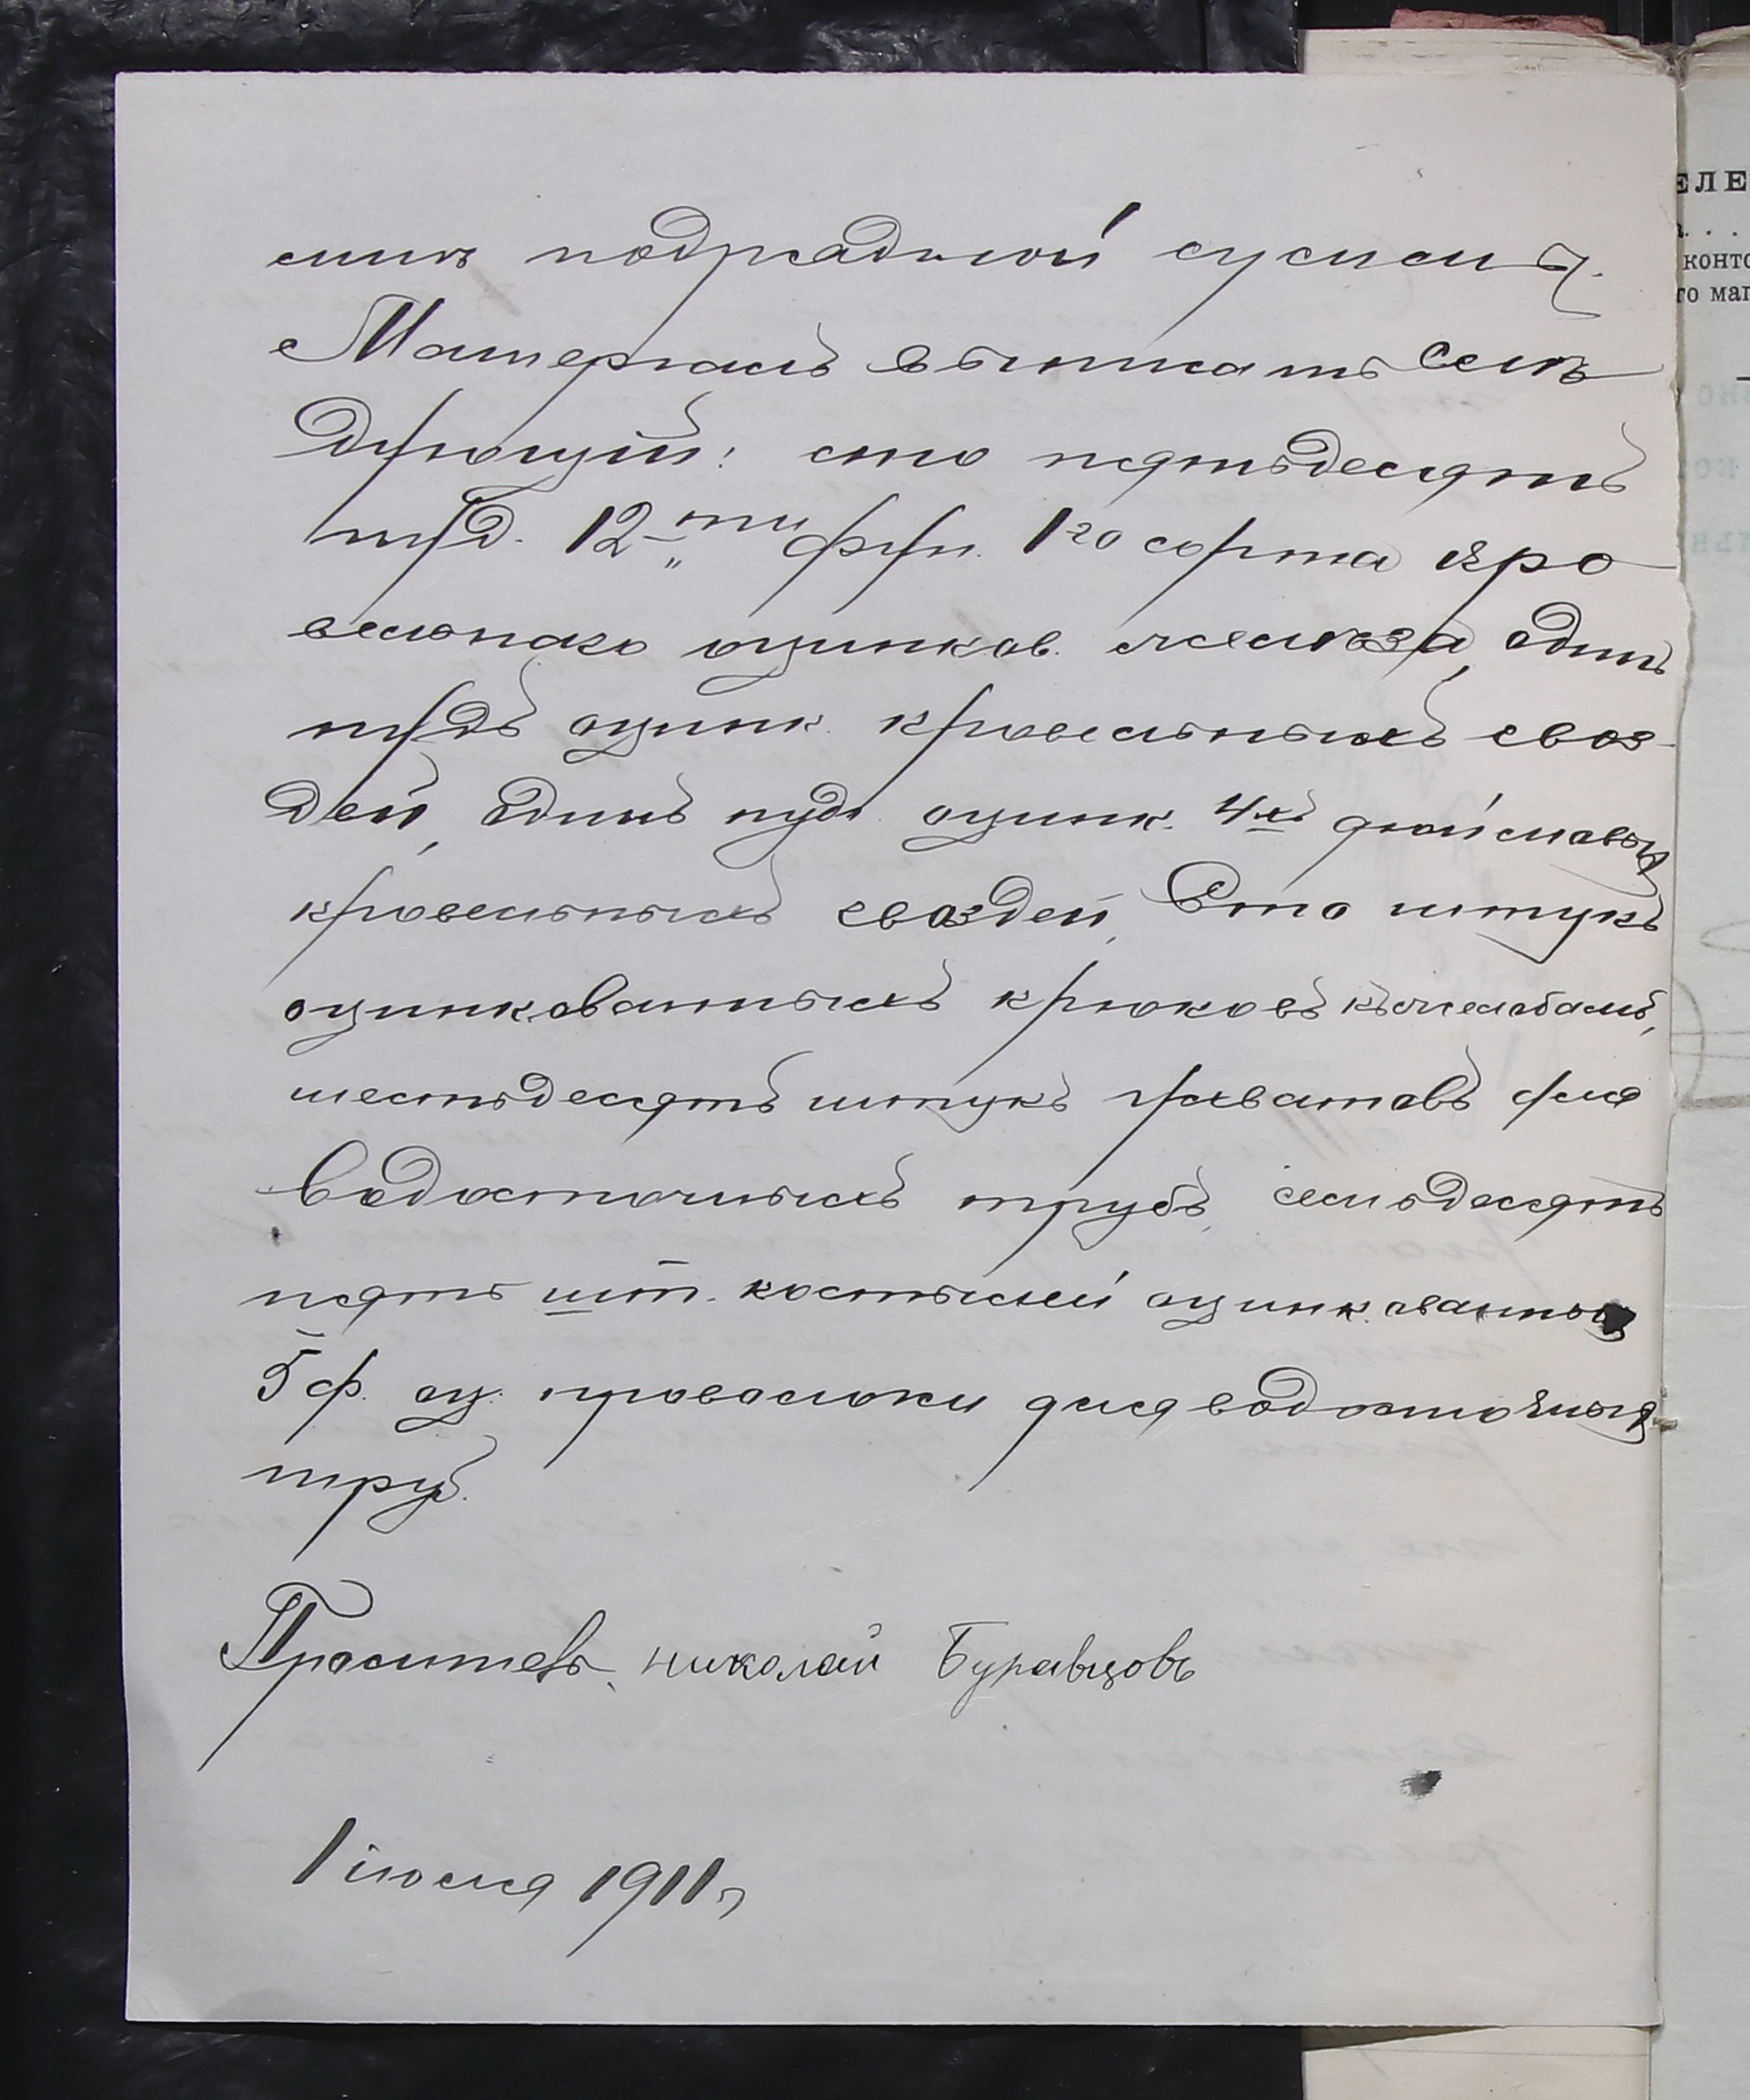 еми подрядной суммы.
Матерьялъ выписать слѣ
дующій: сто пятьдесятъ
пуд. 12-ти фун. 1го сорта кро
вельнаго оцинков. желѣза, одинъ
пудъ оцинк. кровельныхъ гвоз-
дей, одинъ пудъ оцинк. 4хъ дюймовых
кровельныхъ гвоздей, Сто штукъ
оцинкованныхъ крюковъ къ желобамъ,
шестьдесятъ штукъ ухватовъ для
водосточныхъ трубъ, семьдесятъ
пять шт. костылей оцинкованных
5 ф. оц. проволоки для водосточных
труб.
Проситель Николай Буравцовъ
1 іюля 1911 г.
ЕЛЕ
конто
го маг